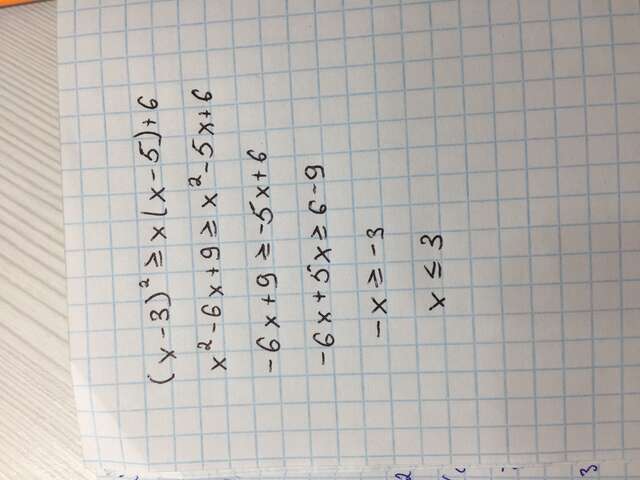 (x-3)² ≥ x(x-5)+6
x²-6x+9 ≥ x²-5x+6
-6x+9 ≥ -5x+6
-6x+5x ≥ 6-9
-x ≥ -3
x ≤ 3